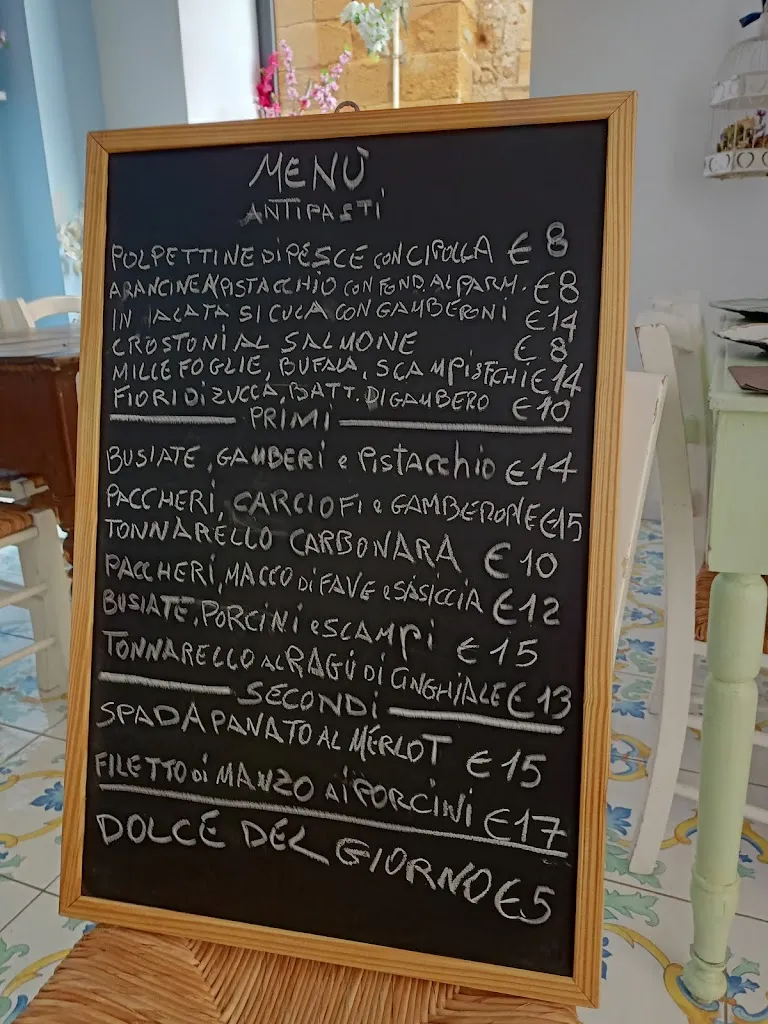 MENÙ
ANTIPASTI
POLPETTINE DI PESCE CON CIPOLLA €8
ARANCINE PISTACCHIO CON FOND. AL PARM. €8
INSALATA SICULA CON GAMBERONI €14
CROSTONI AL SALMONE €8
MILLE FOGLIE, BUFALA, SCAMPI €14
FIORI DI ZUCCA, BATT. DI GAMBERO €10
PRIMI
BUSIATE, GAMBERI e PISTACCHIO €14
PACCHERI, CARCIOFI e GAMBERONE €15
TONNARELLO CARBONARA €10
PACCHERI, MACCO DI FAVE e SASICCIA €12
BUSIATE, PORCINI e SCAMPI €15
TONNARELLO AL RAGÙ DI CINGHIALE €13
SECONDI
SPADA PANATO AL MERLOT €15
FILETTO di MANZO AI PORCINI €17
DOLCE DEL GIORNO €5